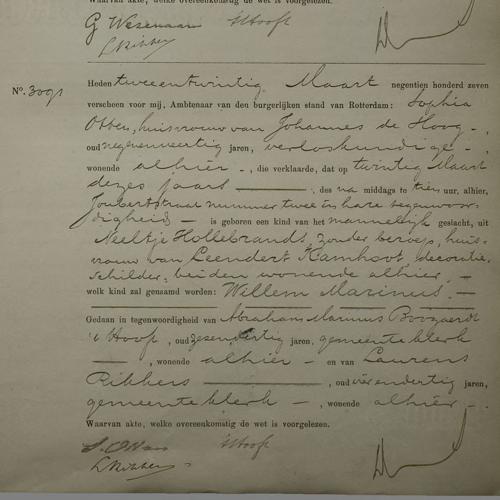 Waarvan akte, welke overeenkomstig de wet is voorgelezen.
G Wesenaar 't Hooft
L Ribbers
No. 3091
Heden tweeentwintig Maart negentien honderd zeven
verscheen voor mij, Ambtenaar van den burgerlijken stand van Rotterdam: Sophia
Otten, huisvrouw van Johannes de Hoog -,
oud negenenveertig jaren, verloskundige -,
wonende alhier -, die verklaarde, dat op twintig Maart
dezes jaars, des na middags te tien uur, alhier,
Joubertstraat nummer twee in hare tegenwoor-
digheid - is geboren een kind van het mannelijk geslacht, uit
Neeltje Hollebrandt, zonder beroep, huis-
vrouw van Leendert Kamhoot, decoratie-
schilder, beiden wonende alhier -
welk kind zal genaamd worden: Willem Marinus. -
Gedaan in tegenwoordigheid van Abraham Marinus Boogaerdt
't Hooft, oud zesendertig jaren, gemeenteklerk
-, wonende alhier - en van Laurens
Ribbers, oud vierendertig jaren,
gemeenteklerk -, wonende alhier -.
Waarvan akte, welke overeenkomstig de wet is voorgelezen.
S. Otten 't Hooft
L Ribbers